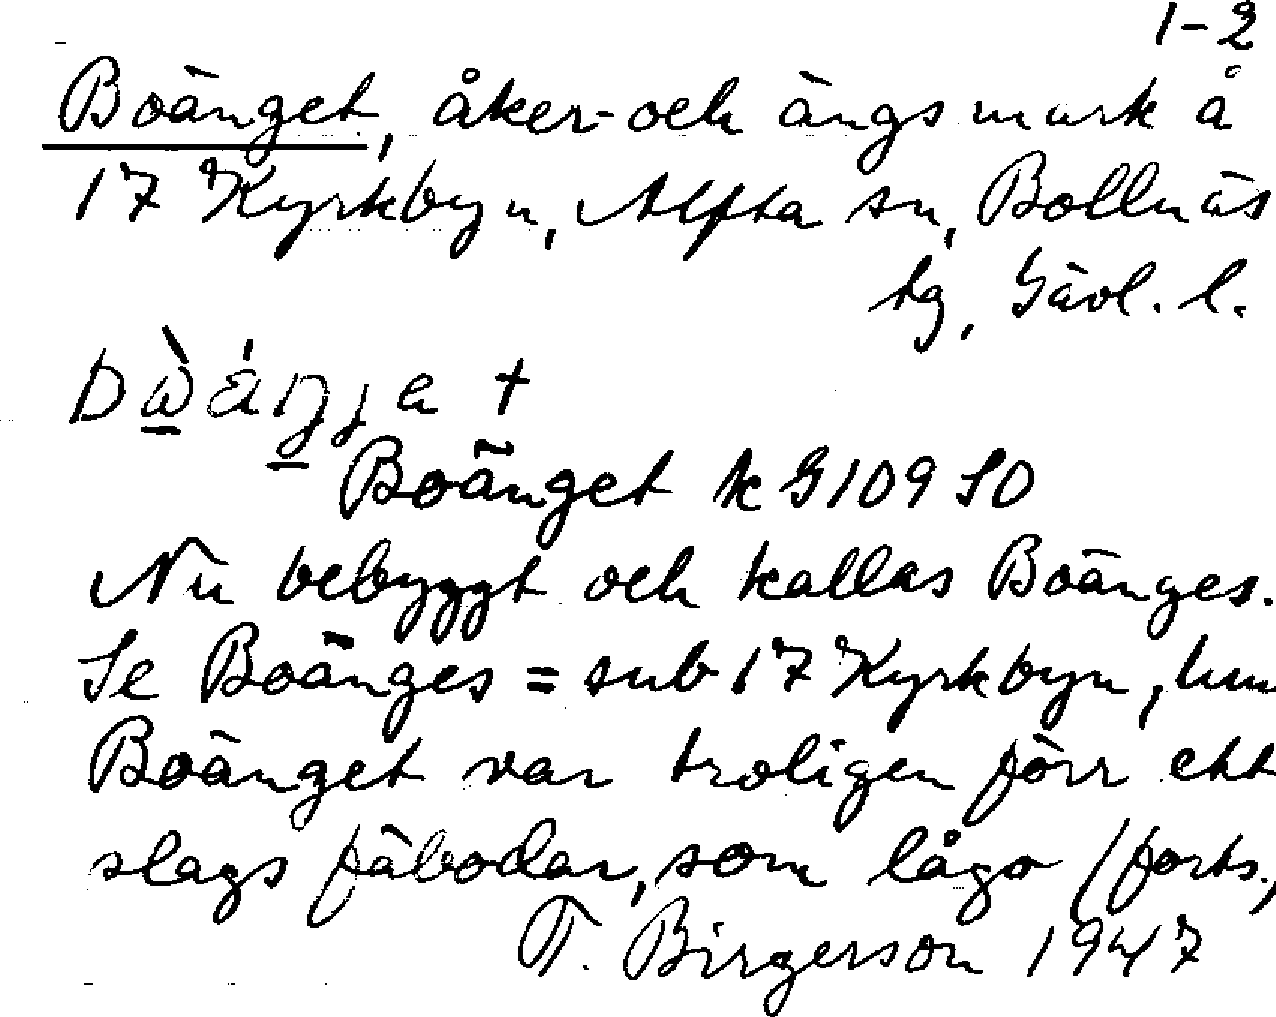 1-2
Boänget, åker- och ängsmark å
17 Kyrkbyn, Alfta sn, Bollnäs
tg, Gävl. l.
Boänget k G109 SO
Nu bebyggt och kallas Boänges.
Se Boänges = sub 17 Kyrkbyn,
Boänget var troligen förr ett
slags fäbodar, som lågo (forts.)
T. Birgerson 1947